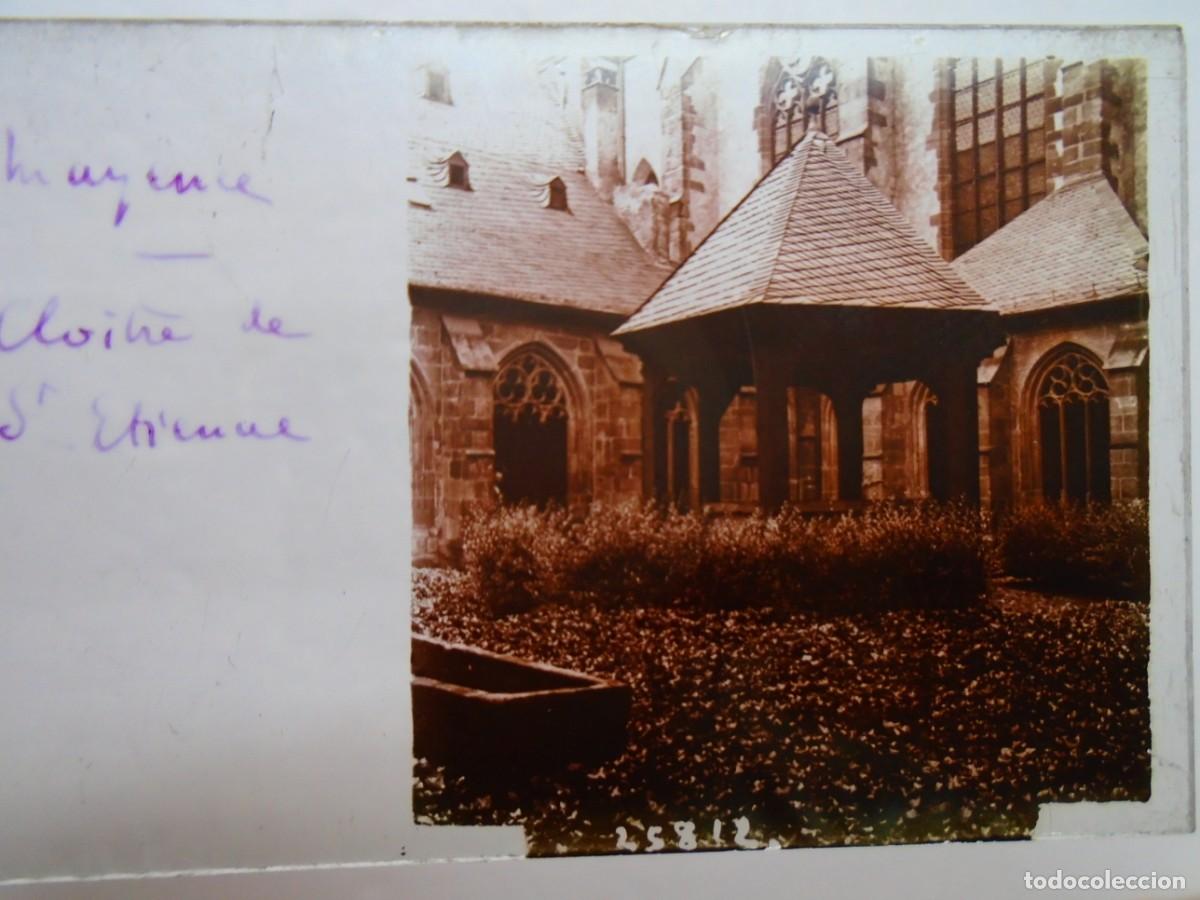 Mayence
—
Cloitre de
St Etienne
25812
todocoleccion